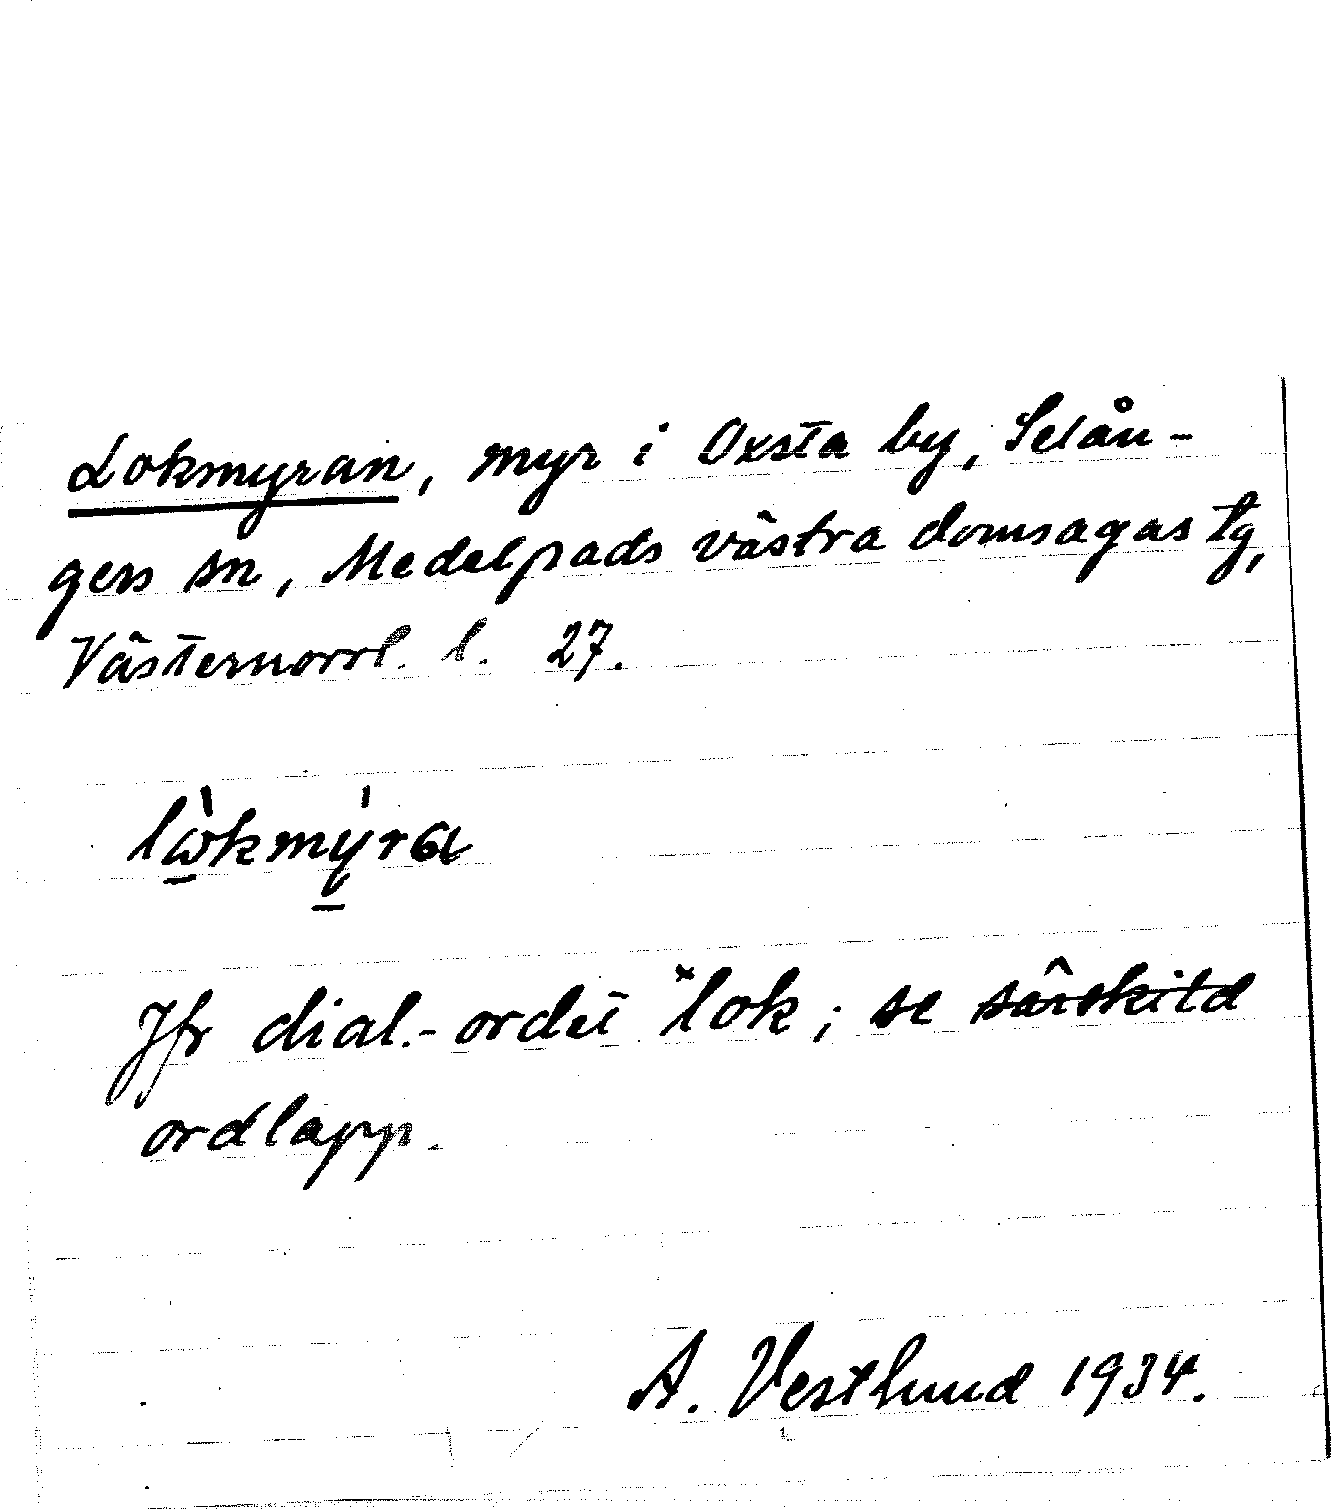 Lokmyran, myr i Oxsta by, Selån-
gers sn, Medelpads västra domsagas tg,
Västernorrl. l. 27.
lὼkmý̠ra
Jfr dial.-ordet *lok; se särskild
ordlapp.
A. Vestlund 1934.